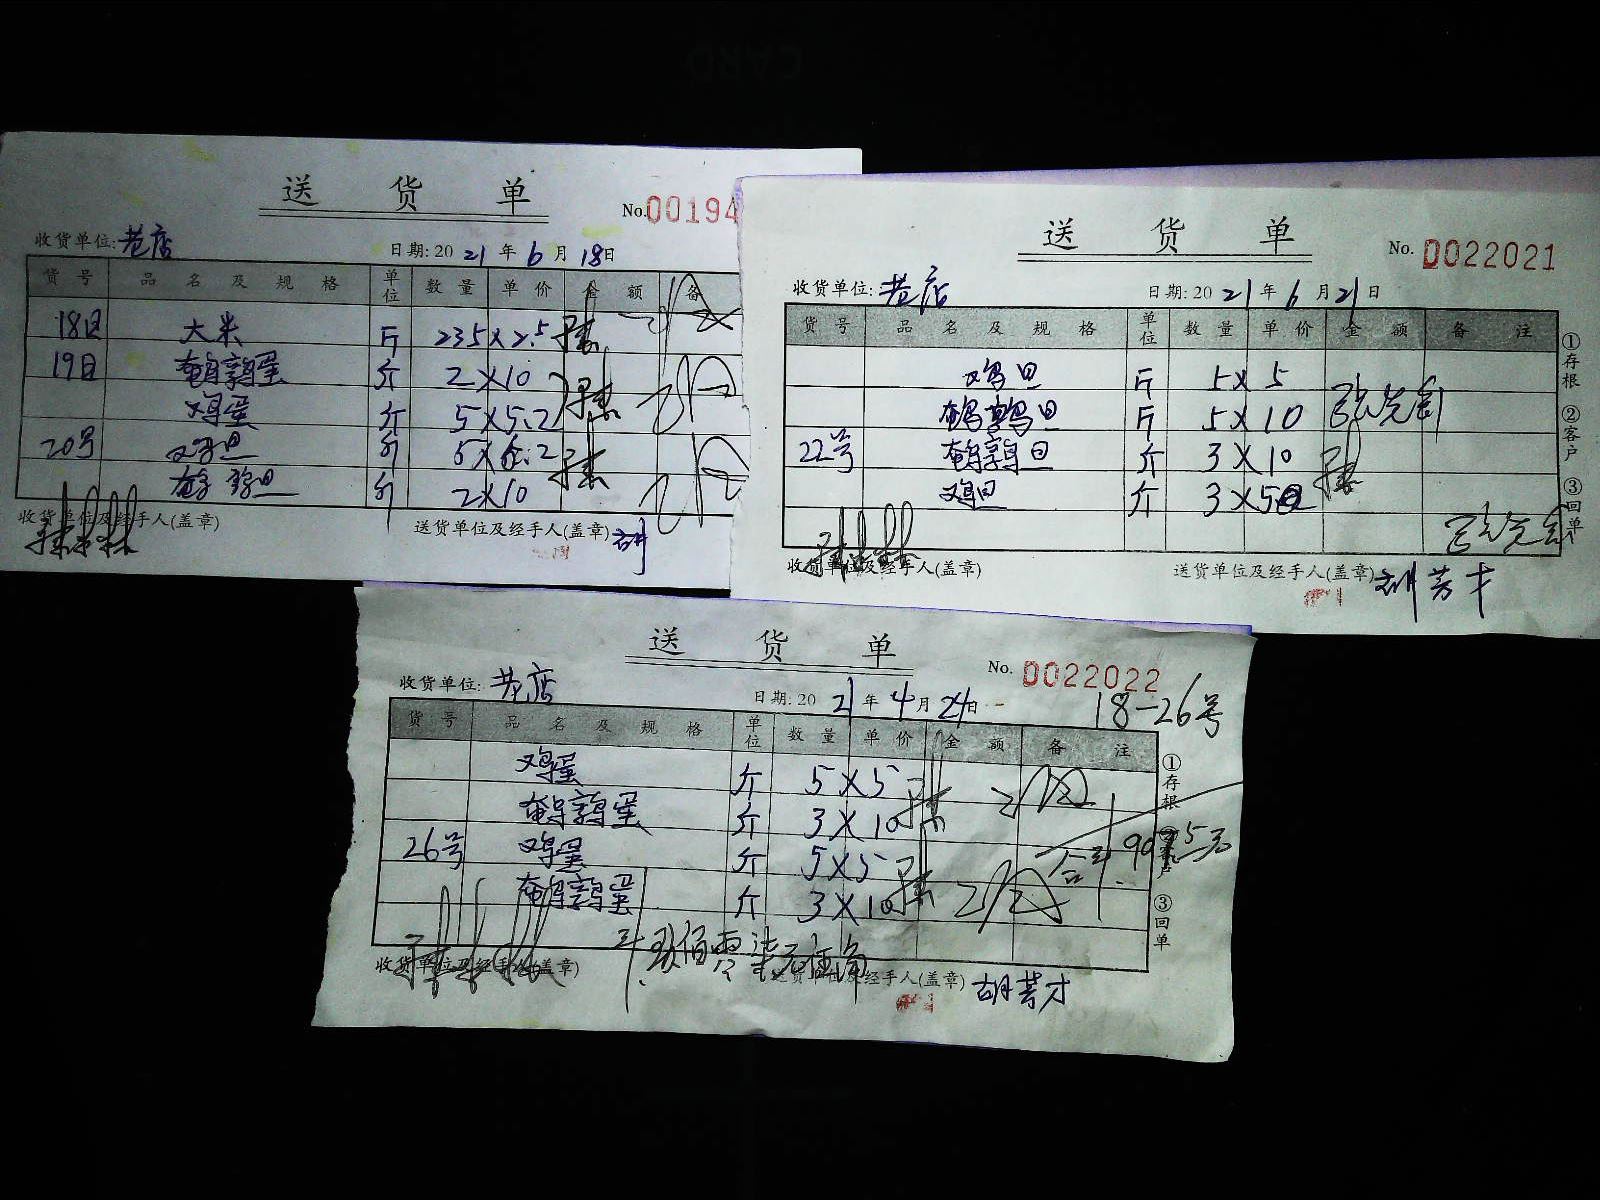 送 货 单
No.00194
收货单位: 老店 日期: 2021年6月18日
货号 品名及规格 单位 数量 单价 金额 备
18日 大米 斤 235×2.5
19日 鹌鹑蛋 斤 2×10
鸡蛋 斤 5×5.2
20号 鸡旦 斤 5×5.2
鹌鹑旦 斤 2×10
收货单位及经手人(盖章) 送货单位及经手人(盖章) 胡
送 货 单
No. 0022021
收货单位: 老店 日期: 2021年6月21日
货号 品名及规格 单位 数量 单价 金额 备注
鸡旦 斤 5×5
鹌鹑旦 斤 5×10
22号 鹌鹑旦 斤 3×10
鸡旦 斤 3×5
收货单位及经手人(盖章) 送货单位及经手人(盖章) 胡芳才
①存根 ②客户 ③回单
送 货 单
No. 0022022
收货单位: 老店 日期: 2021年4月24日
18-26号
货号 品名及规格 单位 数量 单价 金额 备注
鸡蛋 斤 5×5
鹌鹑蛋 斤 3×10
26号 鸡蛋 斤 5×5
鹌鹑蛋 斤 3×10
收货单位及经手人(盖章) 送货单位及经手人(盖章) 胡芳才
①存根 ③回单